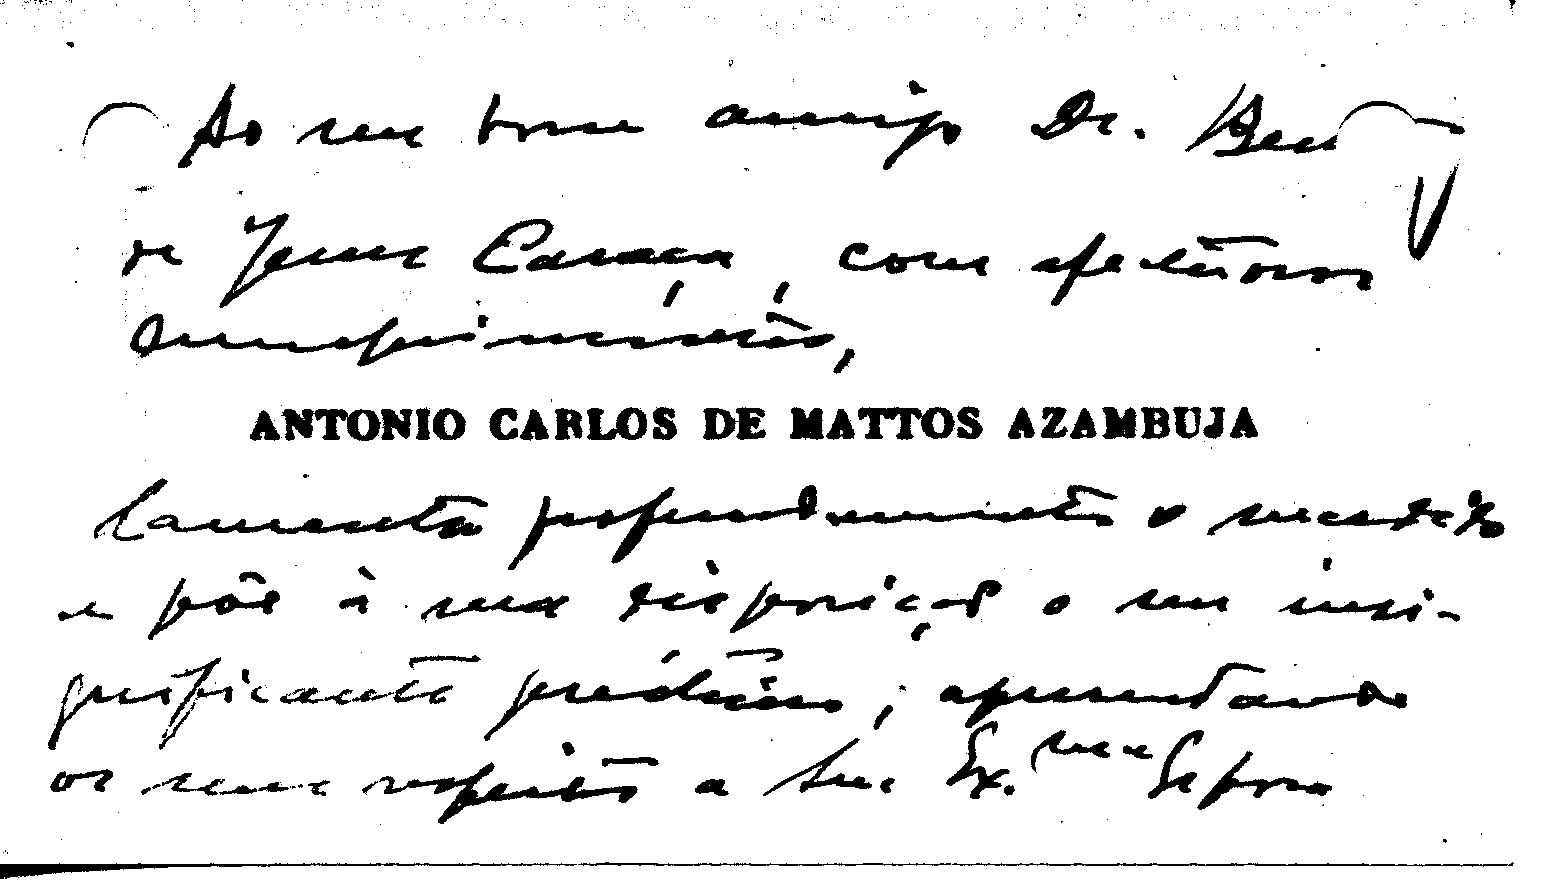 Ao seu bom amigo Dr. Bento
de Jesus Caraça, com afectuosos
cumprimentos,
ANTONIO CARLOS DE MATTOS AZAMBUJA
lamenta profundamente o sucedido
e põe à sua disposição o seu insi-
gnificante préstimo, apresentando
os seus respeitos a Sua Ex.ma Esposa